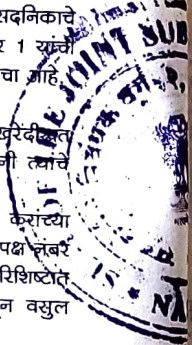 सदनिकाचे
र 1 यांची
चा आहे.
खरेदीखत
नी त्यांचे
करांच्या
पक्ष नंबर
रिशिष्टात
न वसुल
JOINT SUB